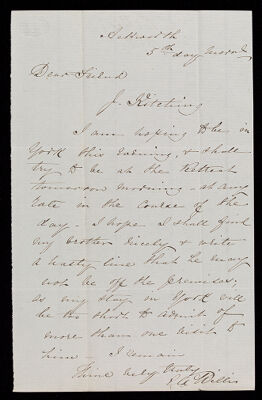 Ackworth
5th day
Dear Friend
J. Kitching
I am hoping to be in
York this evening, & shall
try to be at the Retreat
tomorrow morning - at any
rate in the course of the
day - I hope I shall find
my brother nicely & write
a hasty line that he may
not be off the premises,
as my stay in York will
be too short to admit of
more than one visit to
him - I remain
Thine very truly
Willis